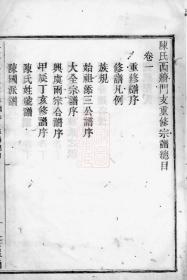 陳氏西牆門支重修宗譜總目
卷一
重修譜序
修譜凡例
族規
始祖添三公譜序
大全宗譜序
興虞兩宗公譜序
甲辰丁亥修譜序
陳氏姓號譜
陳國派譜